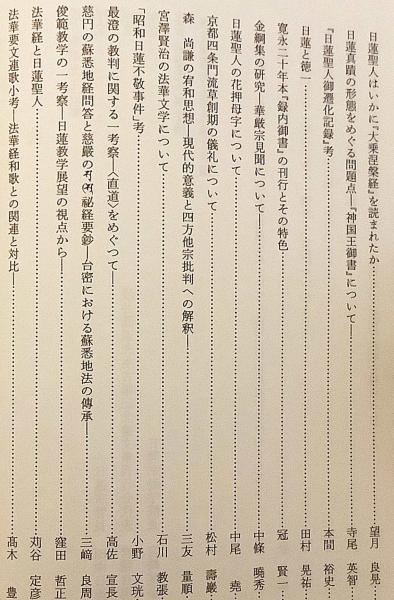 日蓮聖人はいかに『大乗涅槃経』を読まれたか……望月 良晃…
日蓮真蹟の形態をめぐる問題点―『神国王御書』について―……寺尾 英智…
『日蓮聖人御遷化記録』考……本間 裕史…
日蓮と徳一……田村 晃祐…
寛永二十年本『録内御書』の刊行とその特色……冠 賢一…
金綱集の研究―華厳宗見聞について―……中條 暁秀…
日蓮聖人の花押母字について……中尾 堯…
京都四条門流草創期の儀礼について……松村 壽巖…
森 尚謙の宥和思想―現代的意義と四方他宗批判への解釈―……三友 量順…
宮澤賢治の法華文学について……石川 教張…
「昭和日蓮不敬事件」考……小野 文珖…
最澄の教判に関する一考察―〈直道〉をめぐって―……高佐 宣長…
慈円の蘇悉地経問答と慈厳の祕経要鈔―台密における蘇悉地法の傳承―……三﨑 良周…
俊範教学の一考察―日蓮教学展望の視点から―……窪田 哲正…
法華経と日蓮聖人……苅谷 定彦…
法華要文連歌小考―法華経和歌との関連と対比―……高木 豊…